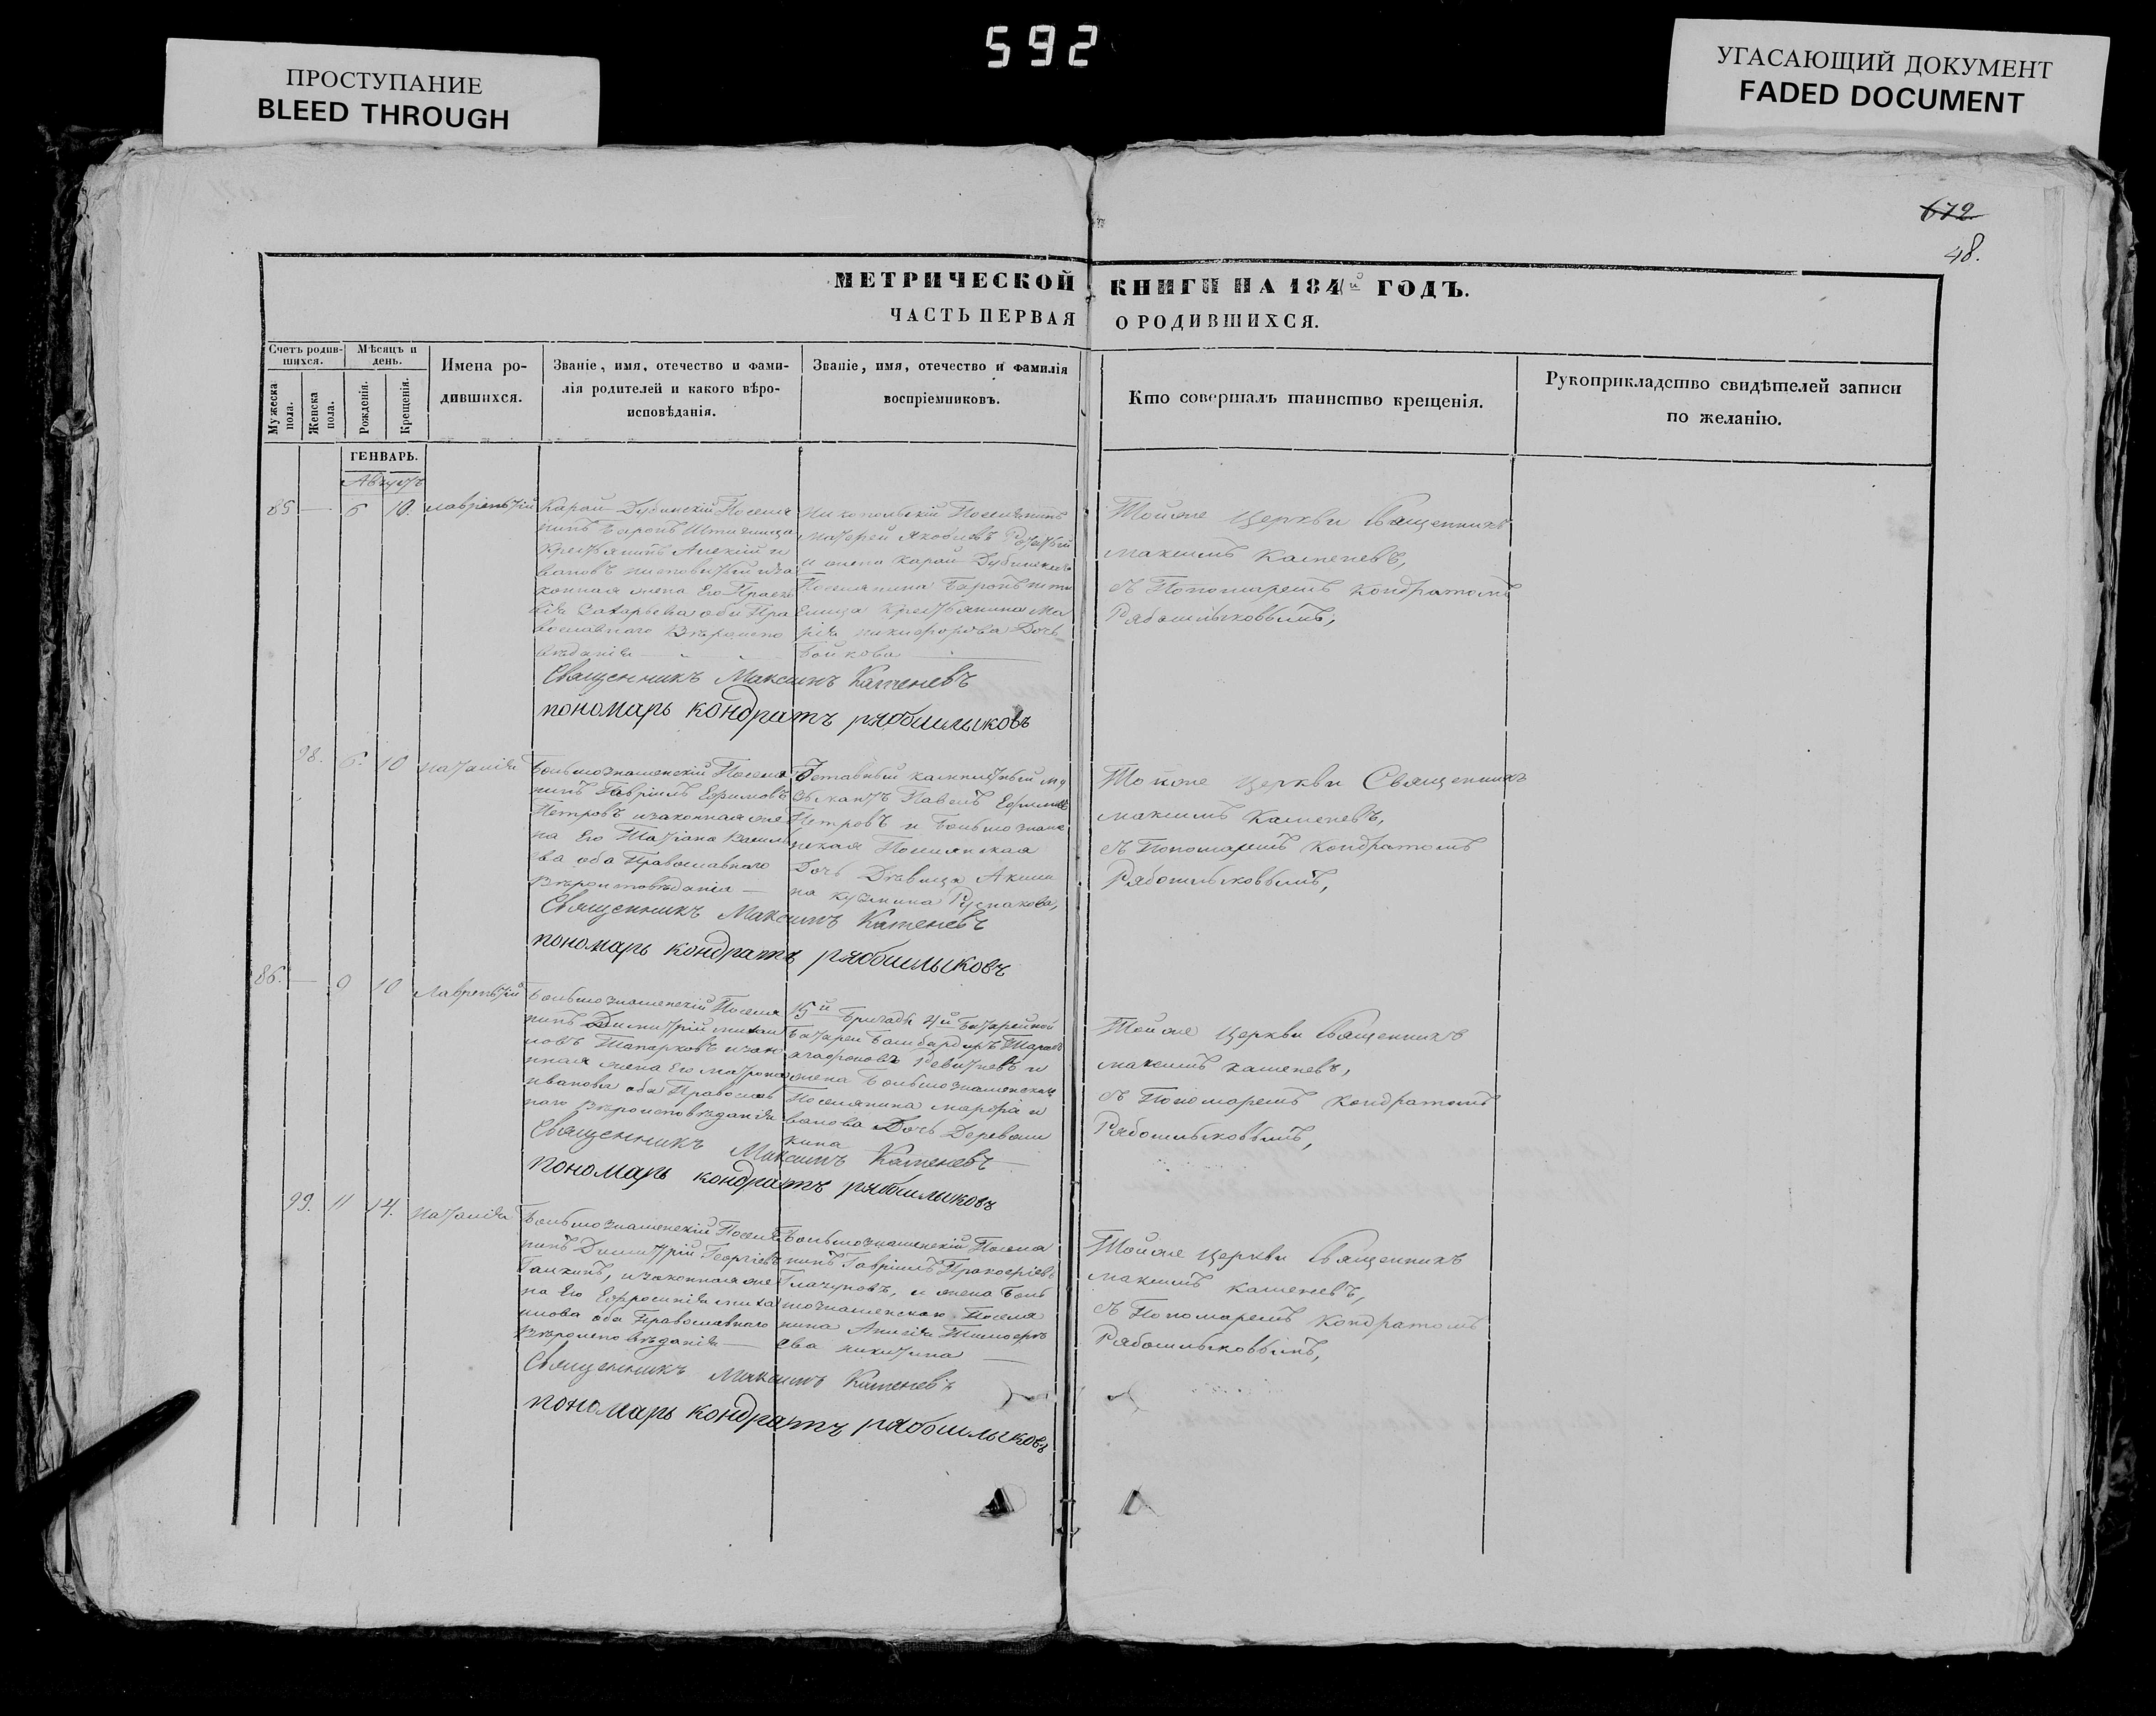 592
ПРОСТУПАНИЕ
BLEED THROUGH
УГАСАЮЩИЙ ДОКУМЕНТ
FADED DOCUMENT
672
48.
МЕТРИЧЕСКОЙ КНИГИ НА 184 ГОДЪ.
ЧАСТЬ ПЕРВАЯ О РОДИВШИХСЯ.
Счетъ родив-
шихся.
Мужеска
пола.
Женска
пола.
Мѣсяцъ и
день.
Рожденія.
Крещенія.
Имена ро-
дившихся.
Званіе, имя, отечество и фами-
лія родителей и какого вѣро-
исповѣданія.
Званіе, имя, отечество и фамилія
воспріемниковъ.
Кто совершалъ таинство крещенія.
Рукоприкладство свидѣтелей записи
по желанію.
ГЕНВАРЬ.
Августъ
85 — 6 10. Лаврентій
Карай Дубинскій Поселя
нинъ
Алексій и
вановъ
конная жена Его
Захарьева оба Пра
вославнаго Вѣроиспо
вѣданія
Никопольскій Поселянинъ
и жена Карай Дубинскаго
Поселянина
рія Никифорова Дочь
Бойкова
Тойже Церкви Священникъ
Максимъ Каменевъ,
съ Пономаремъ Кондратомъ
Рябошлыковымъ,
Священникъ Максимъ Каменевъ
пономарь кондратъ рябошлыковъ
98. 6. 10 Наталія
Большознаменскій Поселя
нинъ Гавріилъ Ефимовъ
Петровъ и законная же
на Его Татіана Василь
ева оба Православнаго
Вѣроисповѣданія —
Павелъ Ефимовъ
Петровъ и Большознаме
нская Поселянская
Дочь Дѣвица Акили
на Кузмина Русакова,
Тойже Церкви Священникъ
Максимъ Каменевъ,
съ Пономаремъ Кондратомъ
Рябошлыковымъ,
Священникъ Максимъ Каменевъ
пономарь кондратъ рябошлыковъ
86. — 9 10 Лаврентій
Большознаменскій Поселя
нинъ Димитрій Михаи
ловъ Тапарковъ и зако
нная жена Его Матрона
Иванова оба Православ
наго Вѣроисповѣданія
15й Бригады 4й Батарейной
Батареи Бомбардиръ
жена Большознаменскаго
Поселянина Марфа И
ванова Дочь Деревян
кина
Тойже Церкви Священникъ
Максимъ Каменевъ,
съ Пономаремъ Кондратомъ
Рябошлыковымъ,
Священникъ Максимъ Каменевъ
пономарь кондратъ рябошлыковъ
99. 11 14. Наталія
Большознаменскій Поселя
нинъ Димитрій Георгіевъ
Галкинъ, и законная же
на Его Ефросинія Миха
илова оба Православнаго
Вѣроисповѣданія —
Большознаменскій Поселя
нинъ Гавріилъ Прокофіевъ
и жена Боль
шознаменскаго Поселя
нина Анисія Тимофее
ва Никитина —
Тойже Церкви Священникъ
Максимъ Каменевъ,
съ Пономаремъ Кондратомъ
Рябошлыковымъ,
Священникъ Максимъ Каменевъ
пономарь кондратъ рябошлыковъ